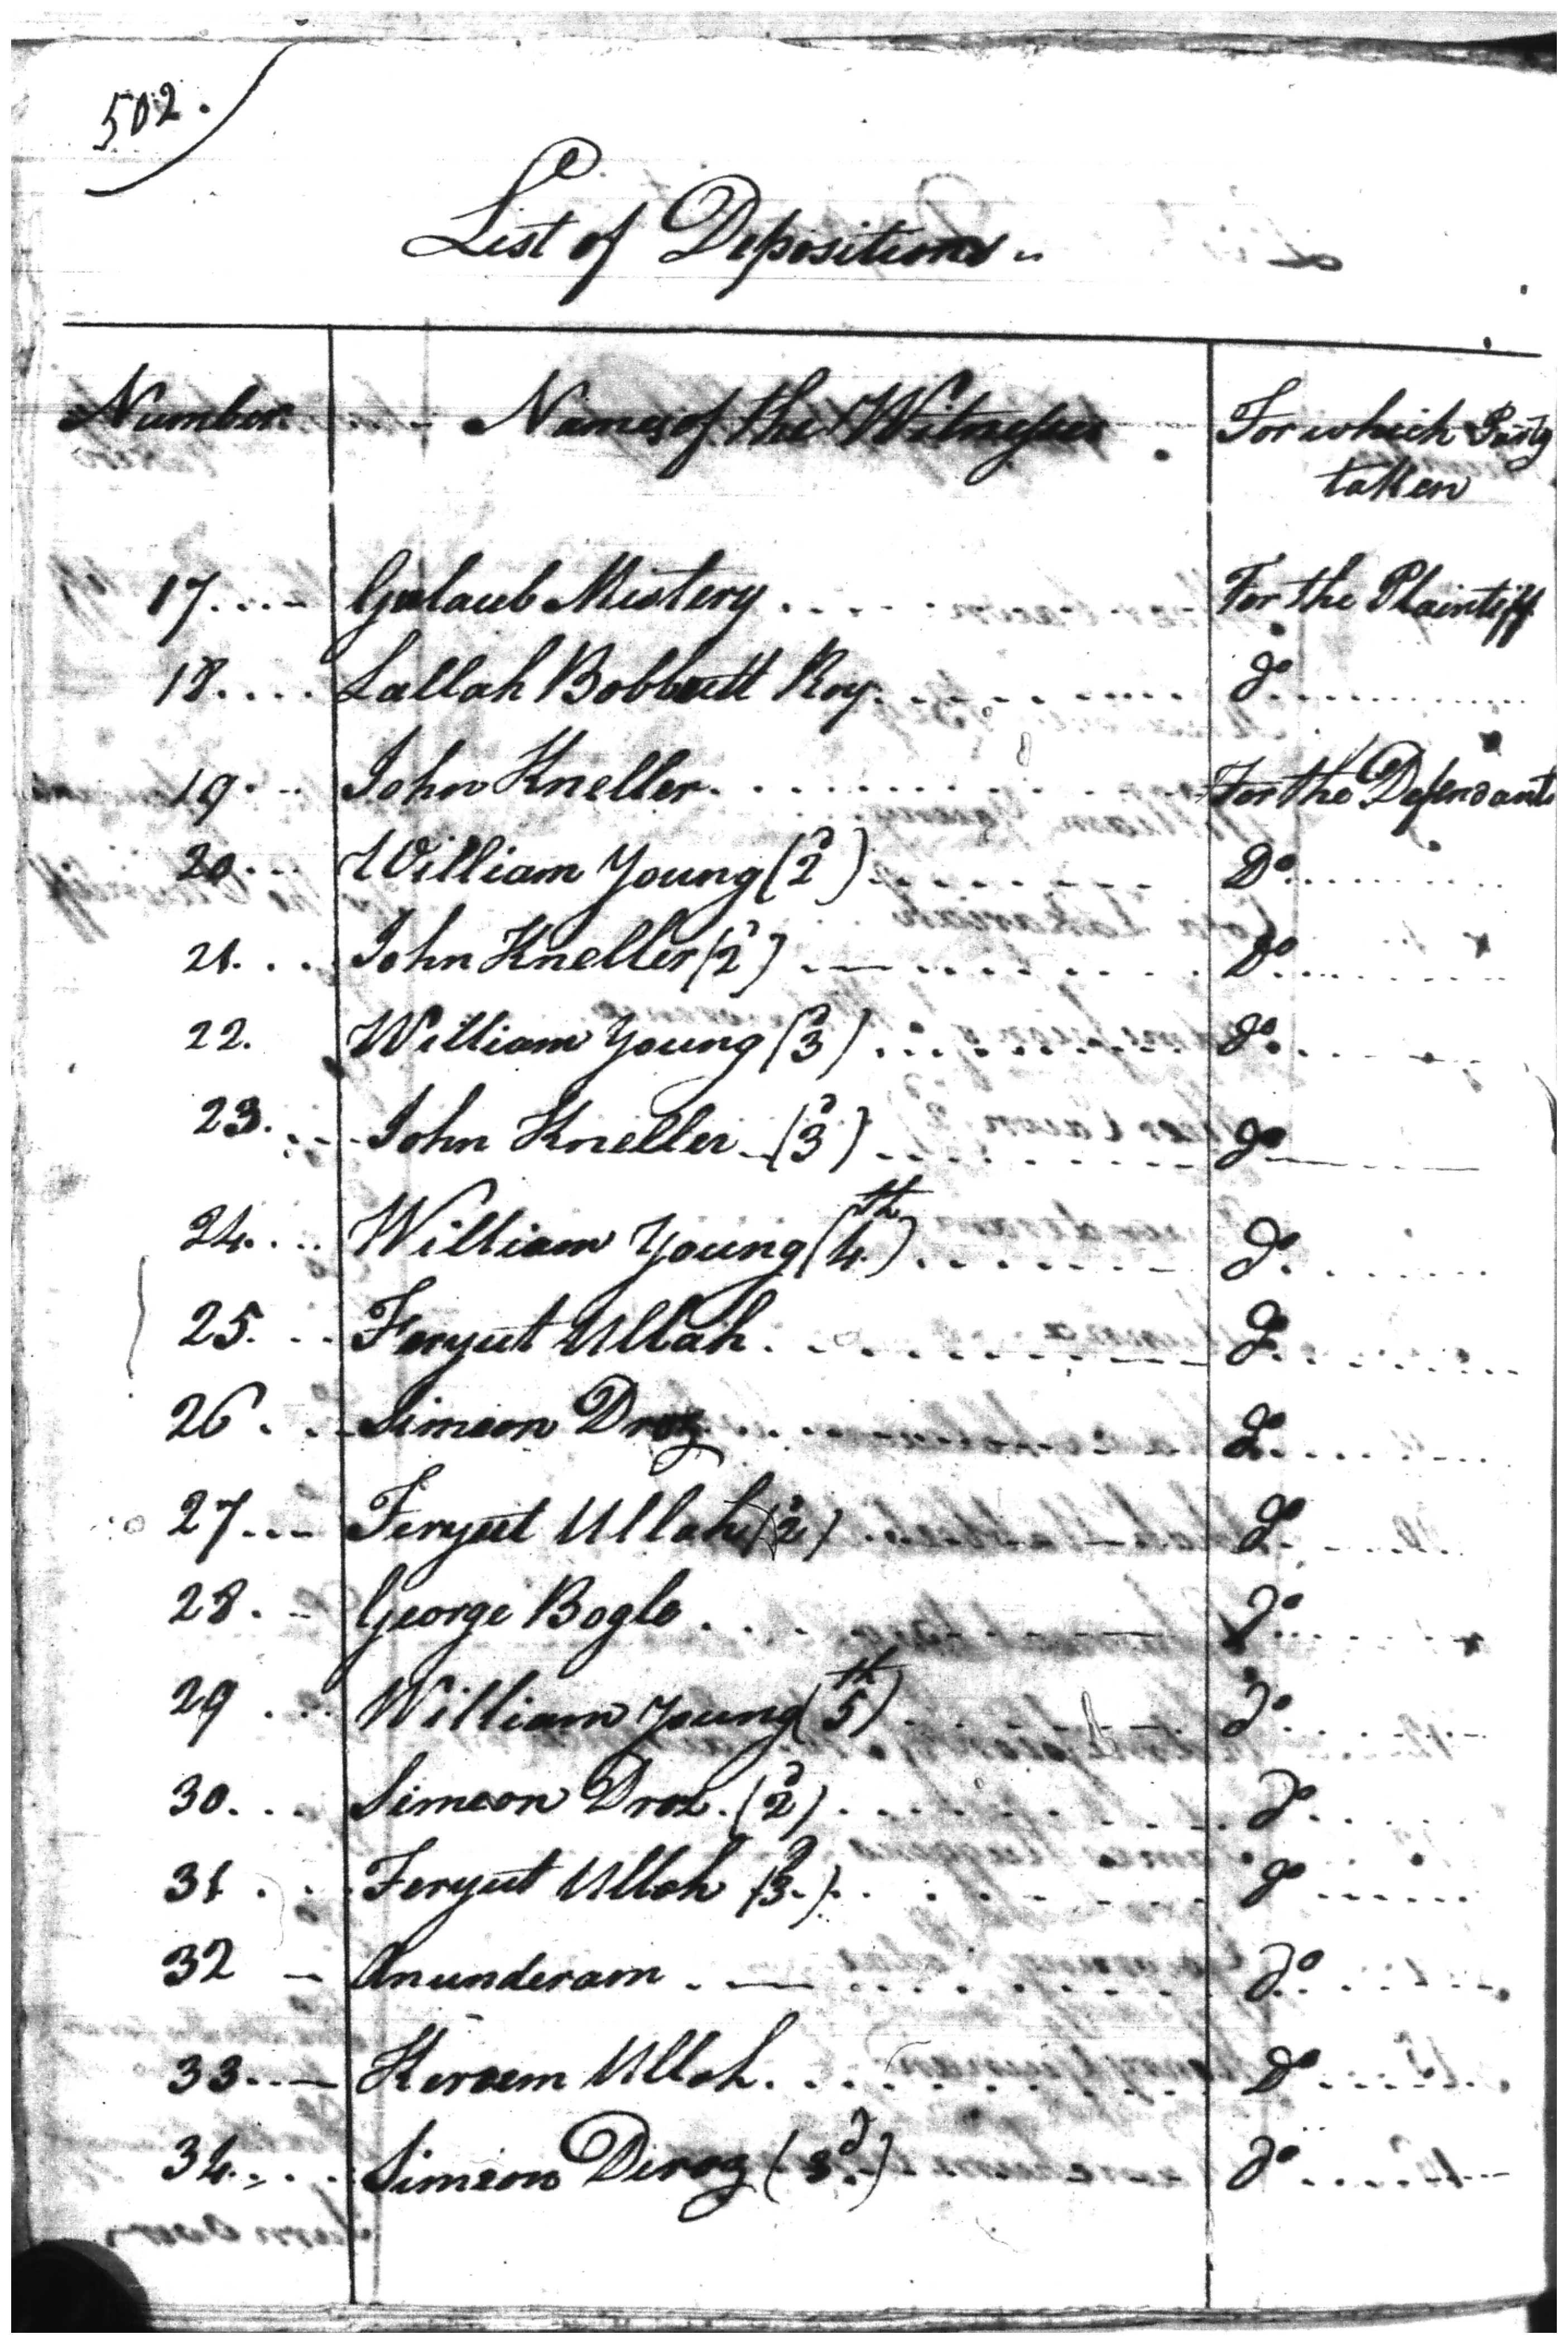 502.
List of Depositions
Number Names of the Witnesses For which Party
taken
17 Gulaub Mistery For the Plaintiff
18 Lallah Bobbutt Roy Do
19 John Kneller For the Defendants
20 William Young (2d) Do
21 John Kneller (2d) Do
22. William Young (3d) Do
23. John Kneller (3d) Do
24. William Young (4th) Do
25. Feryut Ullah Do
26 Simeon Droz Do
27 Feryut Ullah (2d) Do
28 George Bogle Do
29 William Young (5th) Do
30 Simeon Droz (2d) Do
31 Feryut Ullah (3d) Do
32 Anunderam Do
33 Kereem Ullah Do
34 Simeon Droz (3d) Do